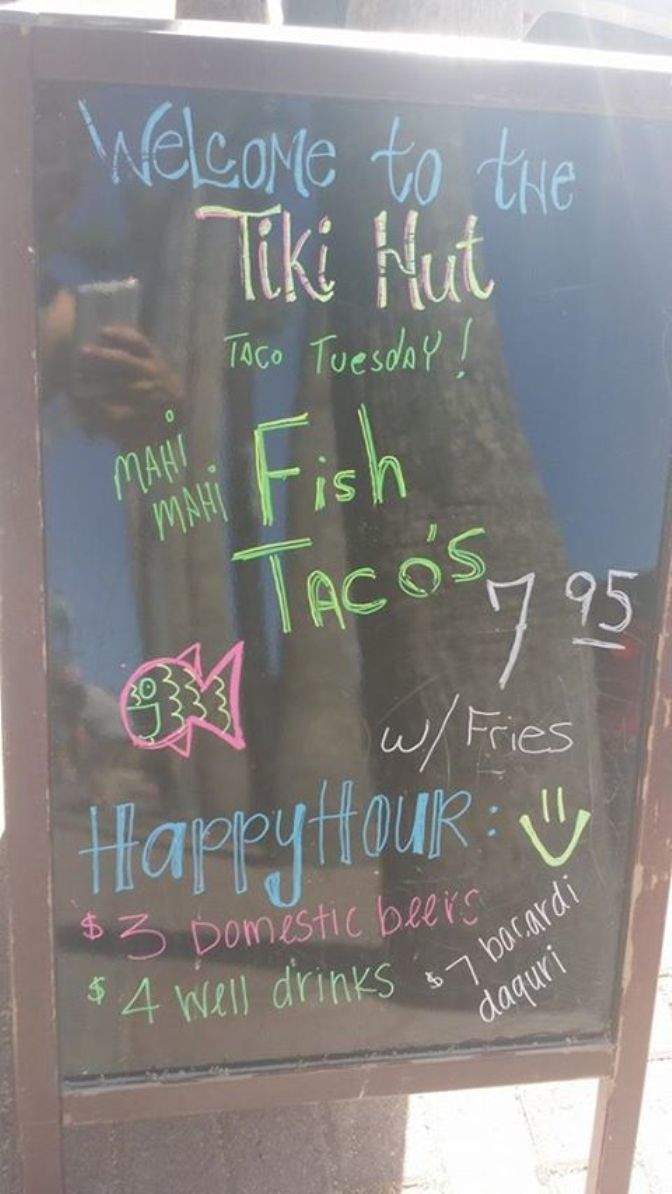 WELCOME to tHe
Tiki Hut
TACO TuesdAY!
MAHI
MAHI
Fish
TACO'S
7 95
w/ Fries
HappyHOUR:
$3 Domestic beers
$4 Well drinks
$7 bacardi
daquri